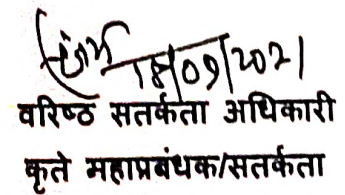 18/09/2021
वरिष्ठ सतर्कता अधिकारी
कृते महाप्रबंधक/सतर्कता